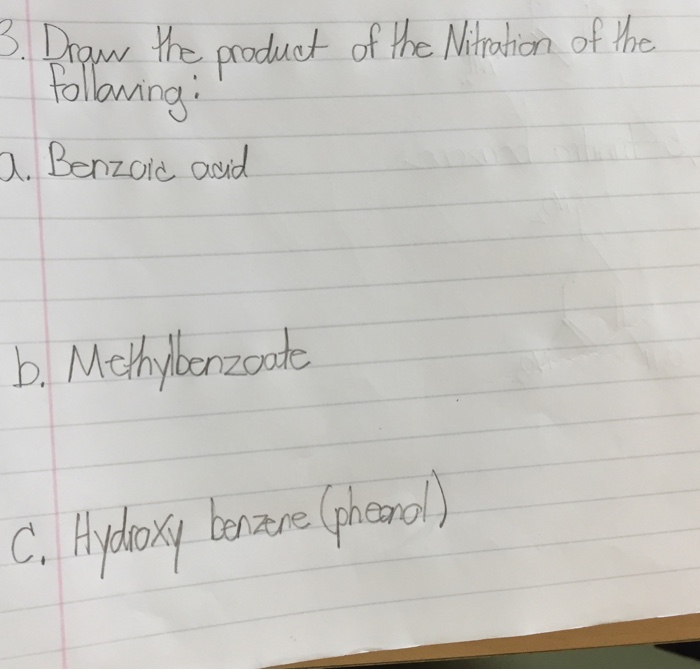 3. Draw the product of the Nitration of the
following:
a. Benzoic acid
b. Methylbenzoate
C. Hydroxy benzene (pheonol)